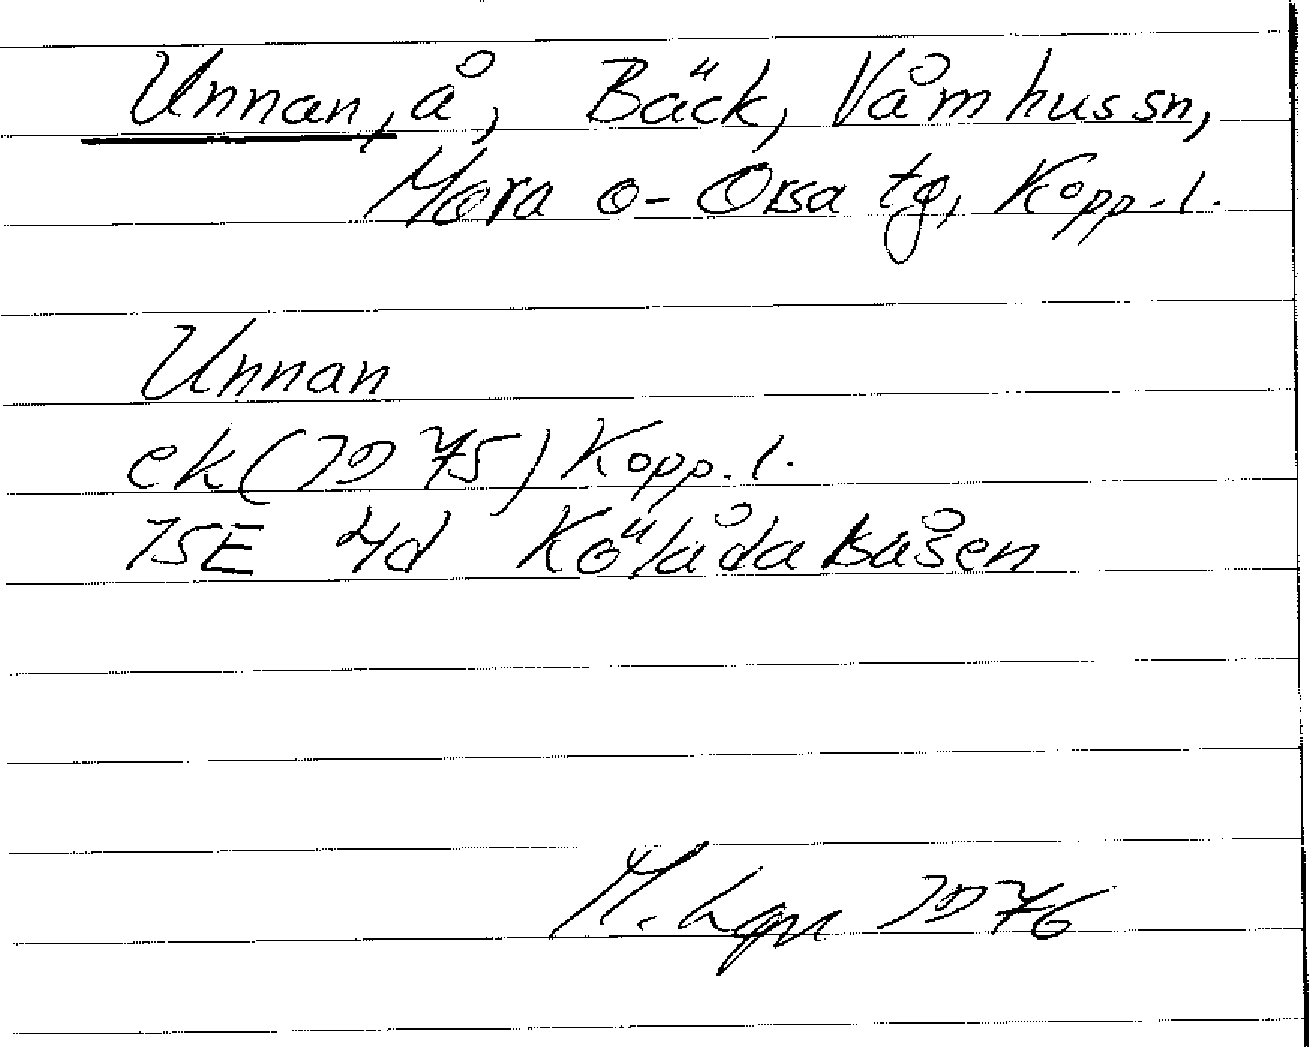 Unnan, å, Bäck, Våmhus sn,
Mora o. Orsa tg, Kopp. l.
Unnan
ek (1975) Kopp. l.
15E 4d Kölåda Båsen
M. Lgn 1976